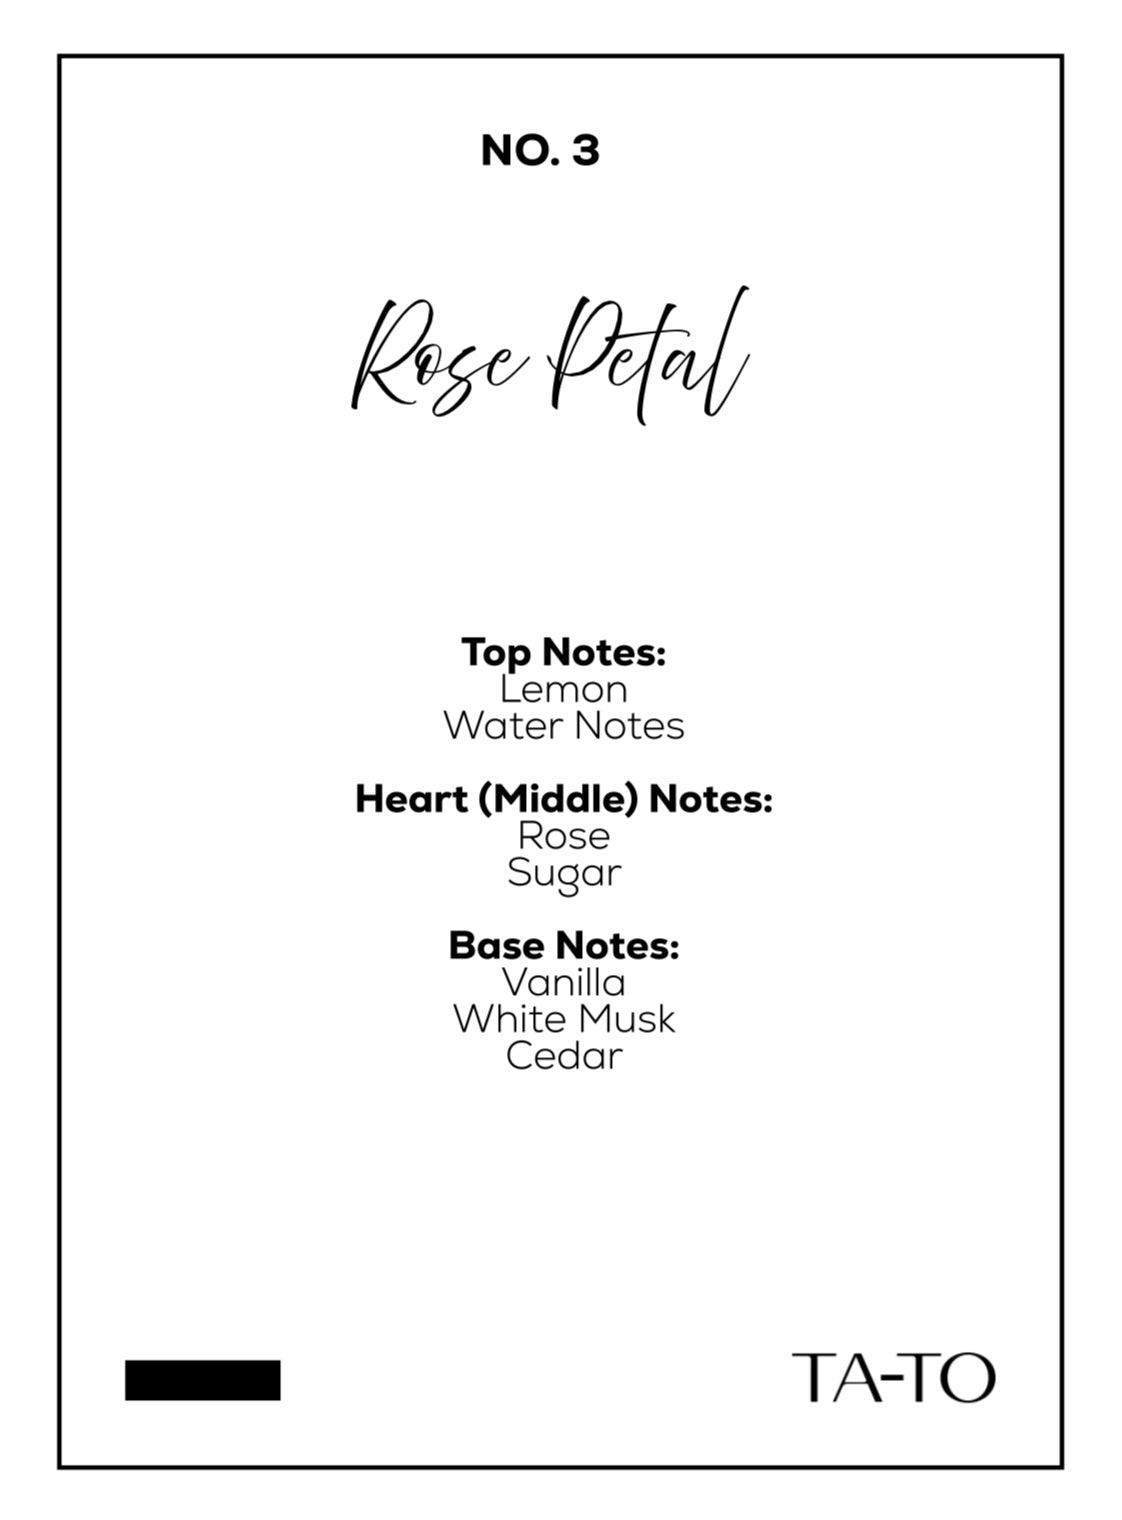 NO. 3
Rose Petal
Top Notes:
Lemon
Water Notes
Heart (Middle) Notes:
Rose
Sugar
Base Notes:
Vanilla
White Musk
Cedar
TA-TO